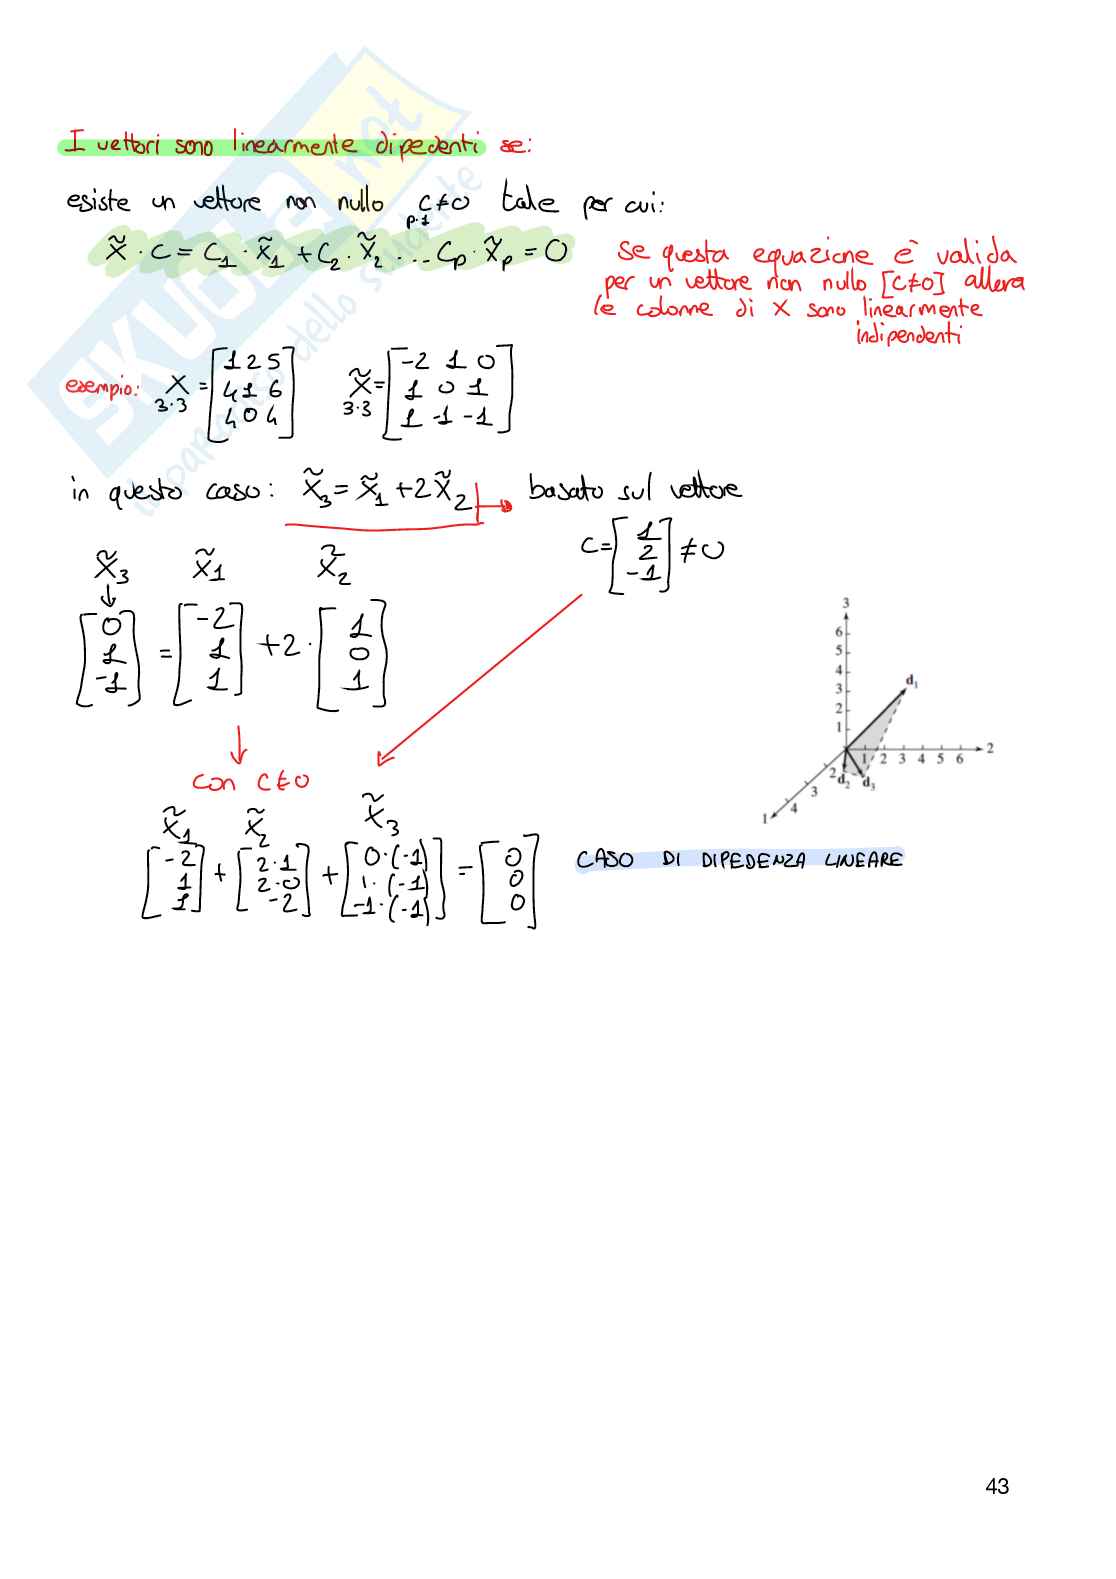 I vettori sono linearmente dipedenti se:
esiste un vettore non nullo c≠0 tale per cui:
p·1
X̃ · C = C₁ · X̃₁ + C₂ · X̃₂ ... Cp · X̃p = 0
se questa equazione è valida
per un vettore non nullo [c≠0] allora
le colonne di X sono linearmente
indipendenti
esempio: X 3·3 = [1 2 5
4 1 6
4 0 4] X̃ 3·3 = [-2 1 0
1 0 1
1 -1 -1]
in questo caso: X̃₃ = X̃₁ + 2X̃₂ → basato sul vettore
C = [1
2
-1] ≠ 0
X̃₃ X̃₁ X̃₂
[0
1
-1] = [-2
1
1] + 2 · [1
0
1]
con c≠0
X̃₁ X̃₂ X̃₃
[-2
1
1] + [2·1
2·0
-2] + [0·(-1)
1·(-1)
-1·(-1)] = [0
0
0]
CASO DI DIPEDENZA LINEARE
3
6
5
4
3
2
1
d₁
1 2 3 4 5 6 2
2 d₂ d₃
3
4
1
43
SKUOLA.not
il paradiso dello studente